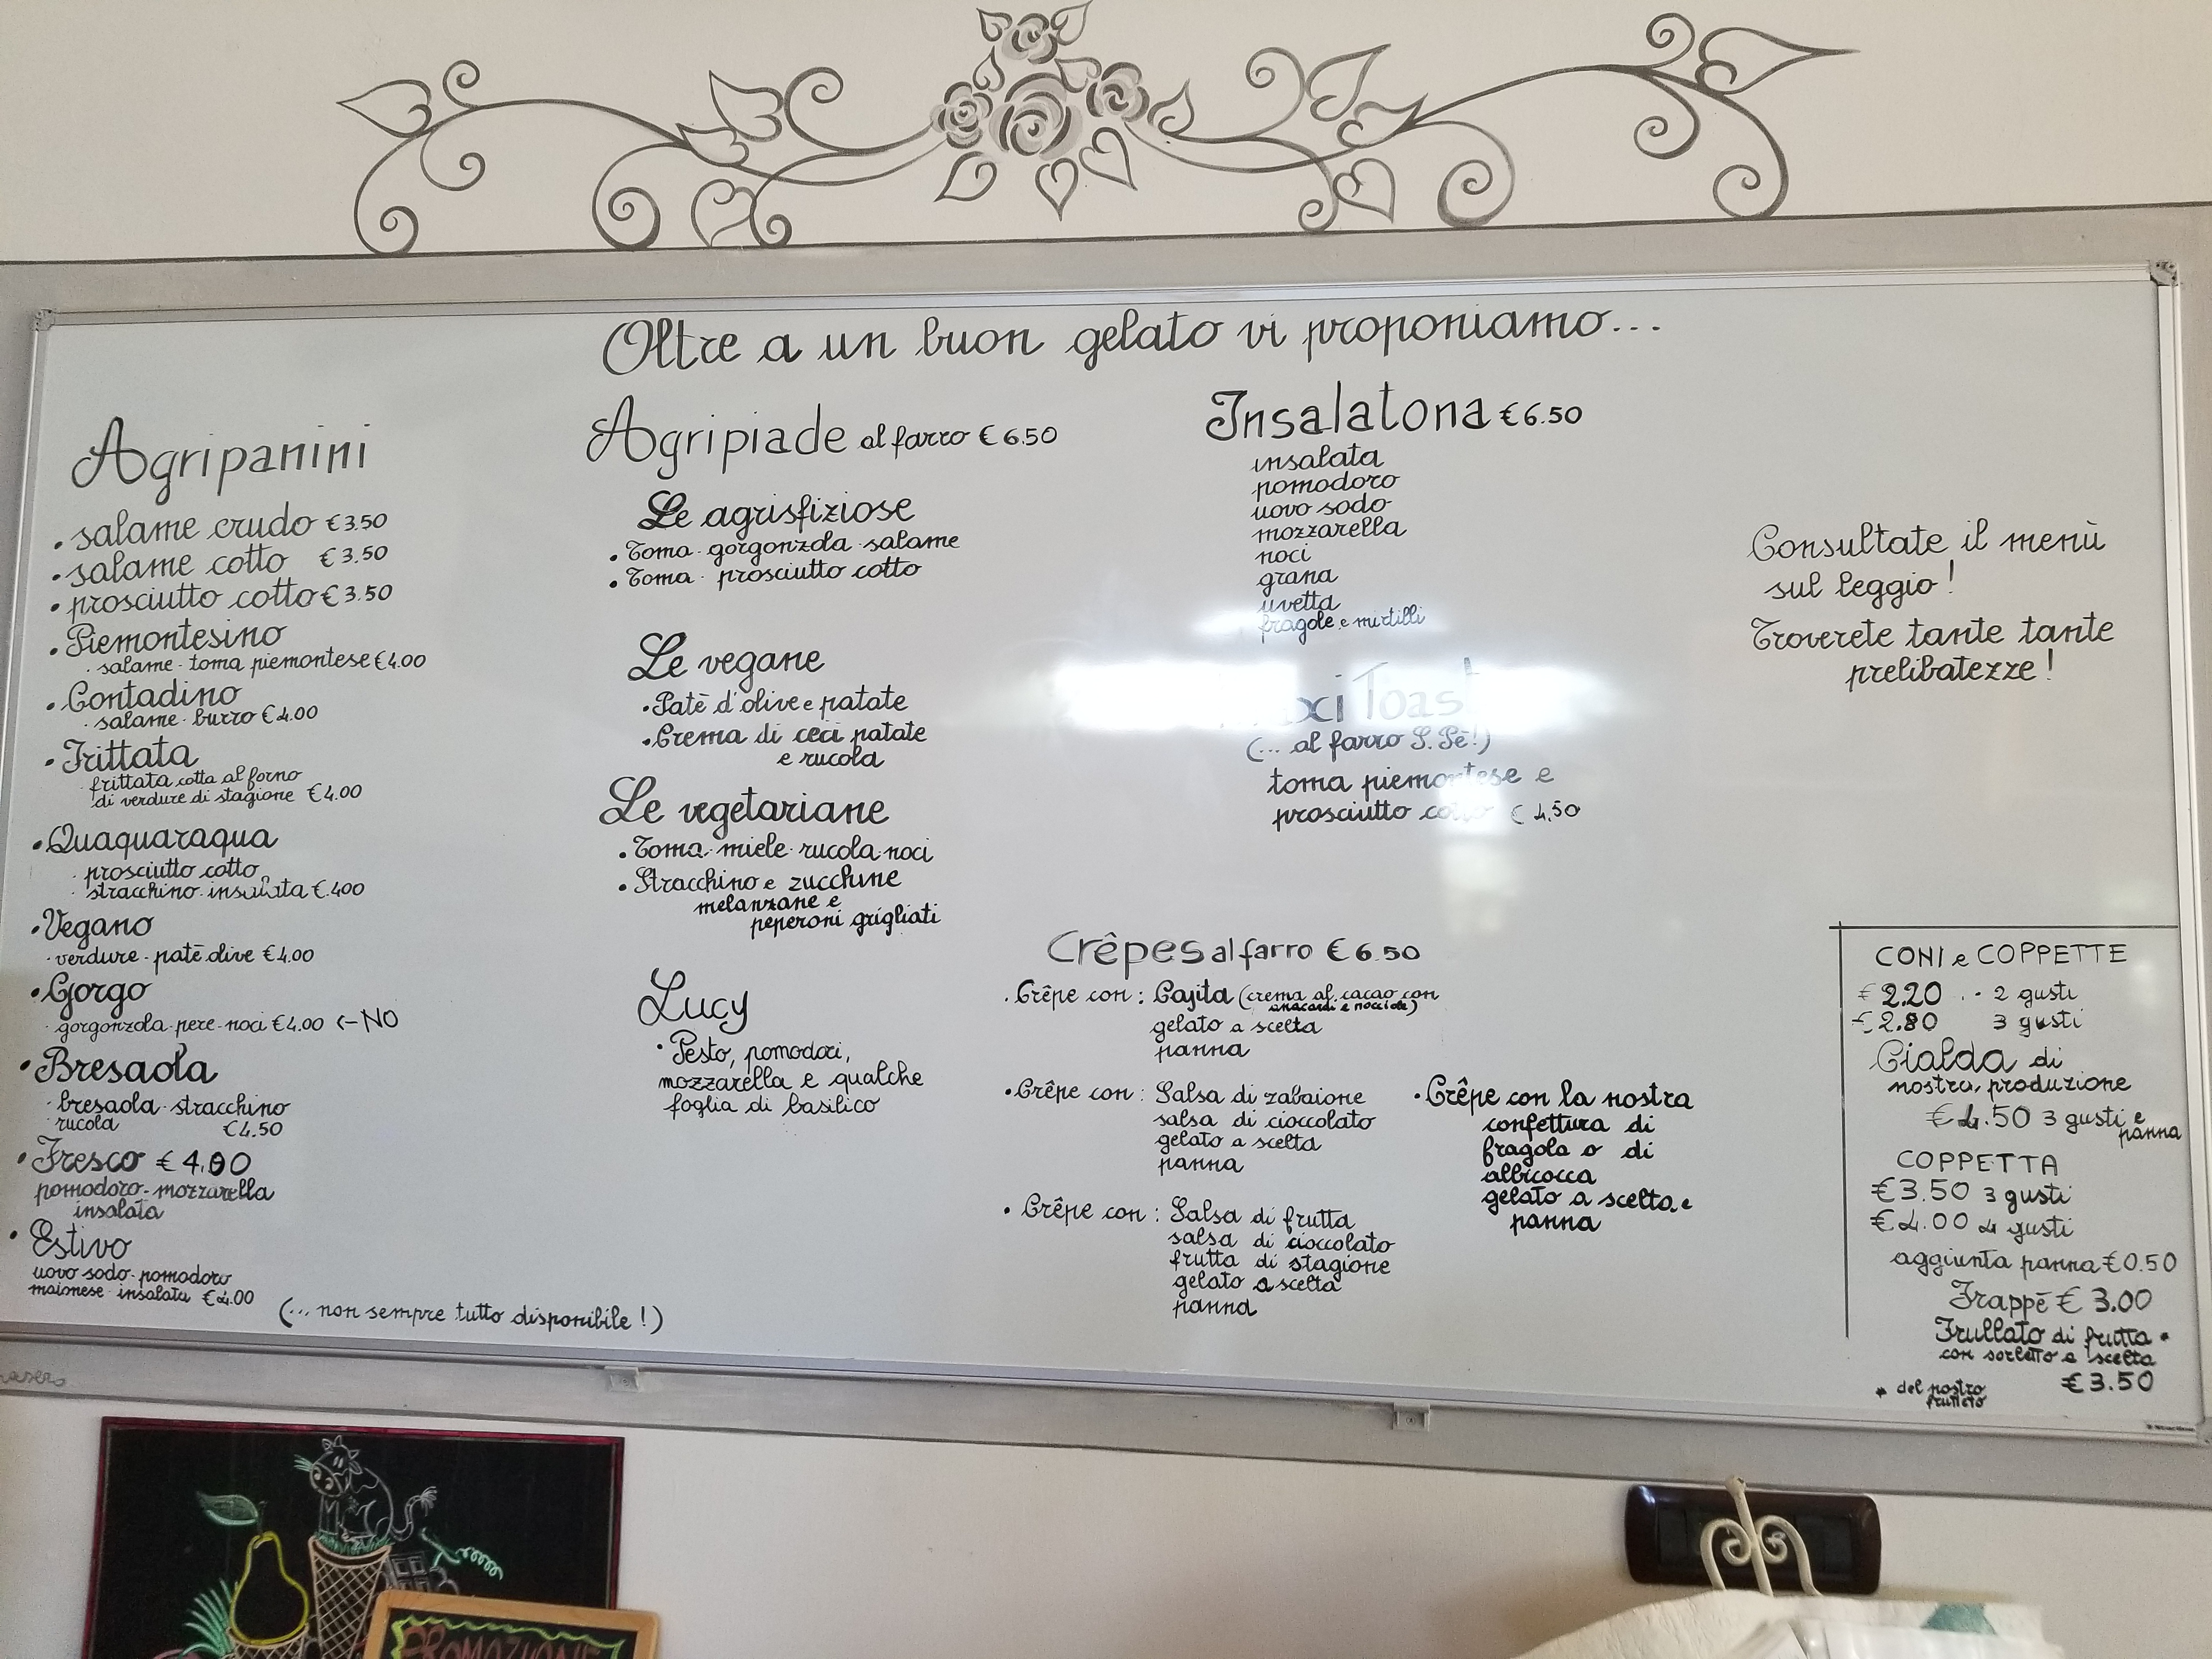 Oltre a un buon gelato vi proponiamo...
Agripanini
• salame crudo €3.50
• salame cotto €3.50
• prosciutto cotto €3.50
• Piemontesino
· salame - toma piemontese €4.00
• Contadino
· salame - burro €4.00
• Frittata
· frittata cotta al forno
di verdure di stagione €4.00
• Quaquaraqua
· prosciutto cotto
· stracchino - insalata €.400
• Vegano
· verdure - patè olive €4.00
• Gorgo
· gorgonzola - pere - noci €4.00 <- NO
• Bresaola
· bresaola - stracchino
rucola €4.50
• Fresco €4.00
pomodoro - mozzarella
insalata
• Estivo
uovo sodo - pomodoro
maionese - insalata €4.00
(... non sempre tutto disponibile!)
Agripiade al farro €6.50
Le agrisfiziose
• Toma - gorgonzola - salame
• Toma - prosciutto cotto
Le vegane
• Patè d'olive e patate
• Crema di ceci patate
e rucola
Le vegetariane
• Toma - miele - rucola - noci
• Stracchino e zucchine
melanzane e
peperoni grigliati
Lucy
• Pesto, pomodori,
mozzarella e qualche
foglia di basilico
Insalatona €6.50
insalata
pomodoro
uovo sodo
mozzarella
noci
grana
uvetta
fragole e mirtilli
Toast
(... al farro S. Pè!)
toma piemontese e
prosciutto cotto €4,50
Crêpes al farro €6.50
· Crêpe con: Cajita (crema al cacao con
anacardi e nocciole)
gelato a scelta
panna
• Crêpe con: Salsa di zabaione
salsa di cioccolato
gelato a scelta
panna
• Crêpe con: Salsa di frutta
salsa di cioccolato
frutta di stagione
gelato a scelta
panna
• Crêpe con la nostra
confettura di
fragola o di
albicocca
gelato a scelta e
panna
Consultate il menù
sul leggio!
Troverete tante tante
prelibatezze!
CONI e COPPETTE
€2.20 .- 2 gusti
€2.80 3 gusti
Cialda di
nostra produzione
€4.50 3 gusti e
panna
COPPETTA
€3.50 3 gusti
€4.00 4 gusti
aggiunta panna €0.50
Frappè €3.00
Frullato di frutta *
con sorbetto a scelta
€3.50
* del nostro
frutteto
PROMOZIONE